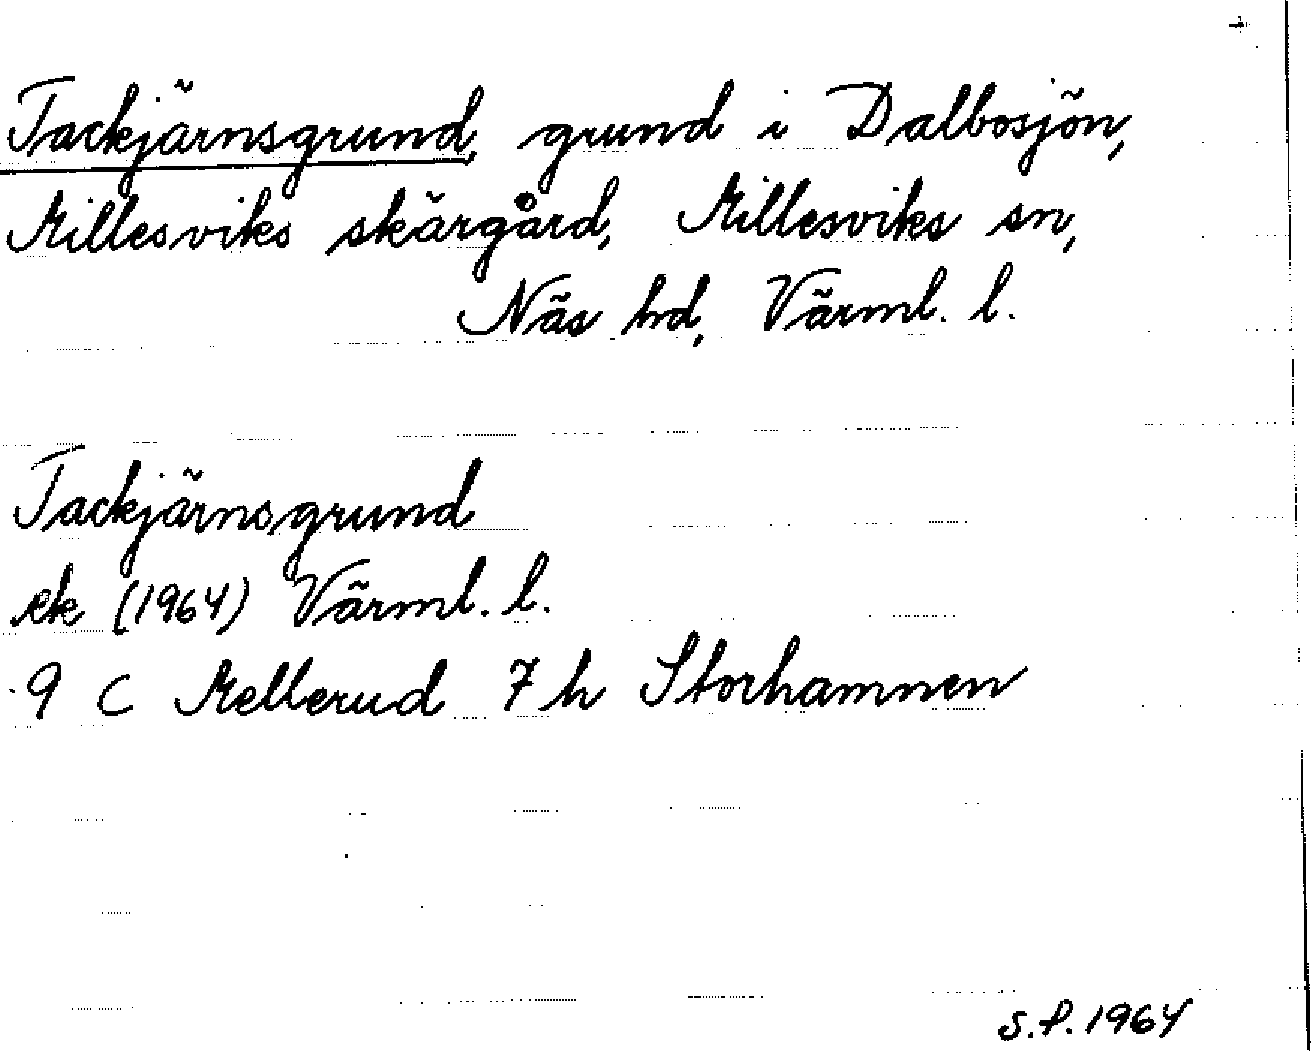 Tackjärnsgrund, grund i Dalbosjön,
Millesviks skärgård, Millesviks sn,
Näs hd, Värml. l.
Tackjärnsgrund
ek (1964) Värml. l.
9 C Mellerud 7 h Storhamnen
S.P. 1964